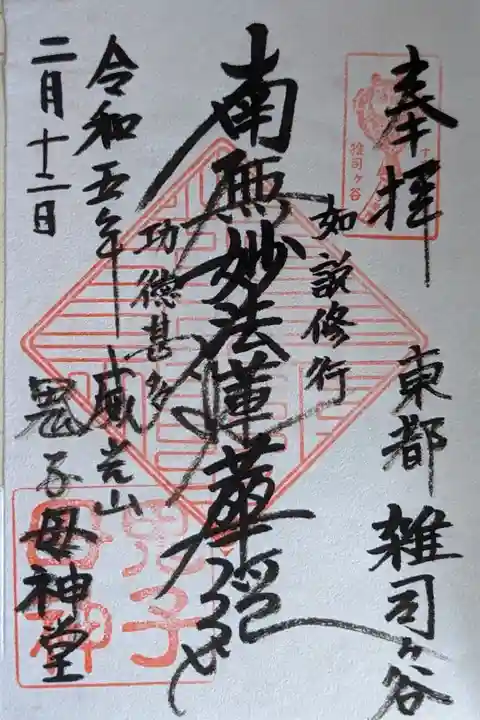 奉拝
雑司ヶ谷
東都 雑司ヶ谷
如説修行
南無妙法蓮華経
功徳甚多
威光山
鬼子母神堂
令和五年
二月十二日
鬼子母神